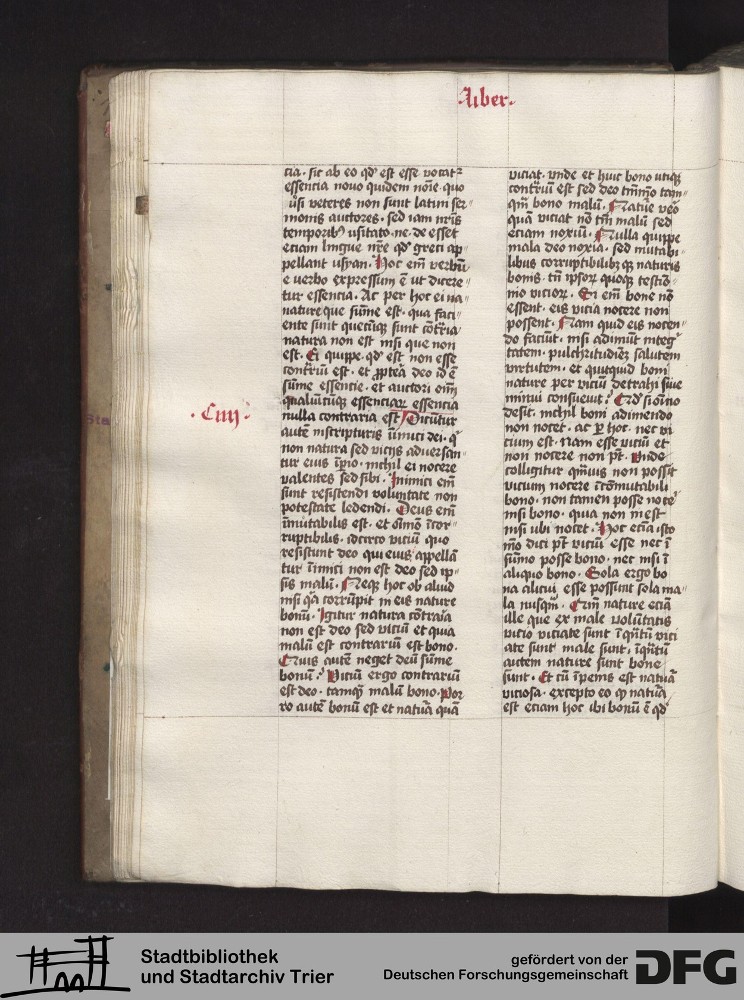 Liber
cia. sic ab eo qd est esse vocat
essencia novo quidem noīe. quo
usi veteres non sunt latini ser
monis auctores. sed iam nr̄is
temporib usitato. ne deesset
eciam lingue nr̄e qd greci ap
pellant usyan. Hoc em̄ verbū
e verbo expressum ē ut dicere
tur essencia. Ac per hoc ei na
nature que sūme est. qua faci
ente sunt quecūq sunt cōtr̄ia
natura non est nisi que non
est. Ei quippe. qd est non esse
contr̄iū est. et ꝓpt̄ea deo id ē
sūme essentie. et auctori om̄i
qualiūcūq essenciaꝝ essencia
nulla contraria est Dicūtur
autē in scripturis inimici dei. q
non natura sed vicijs adversan
tur eius īpio. nichil ei nocere
valentes sed sibi. Inimici em̄
sunt resistendi voluntate non
potestate ledendi. Deus em̄
īmutabilis est. et oīmo īcor
ruptibilis. idcirco viciū quo
resistunt deo qui eius appellā
tur īimici non est deo sed ip
sis malū. Neqꝫ hoc ob aliud
nisi qa corrūpit in eis nature
bonū. Igitur natura cōtr̄ia
non est deo sed viciū et quia
malū est contrariū est bono.
Quis autē neget deū sūme
bonū. Viciū ergo contrariū
est deo. tamqꝫ malū bono. Por
ro autē bonū est et natūa quā
Ciiij
viciat. unde et huic bono utiqꝫ
contr̄iū est sed deo tm̄mō tam
qm̄ bono malū. Nature vēo
quā viciat nō tm̄ malū sed
eciam noxiū. Nulla quippe
mala deo noxia. sed mutabi
libus corruptibilibꝫqꝫ naturis
bonis. tn̄ ipsoꝝ quoqꝫ testīo
nio vicioꝝ. Si em̄ bone nō
essent. eis vicia nocere non
possent. Nam quid eis nocen
do faciūt. nisi adimūt integ
tatem. pulchritudīez salutem
virtutem. et quicquid boni
nature per viciū detrahi sive
minui consuevit. Qd si oīno
desit. nichil boni adimendo
non nocet. ac ꝑ hoc. nec vi
cium est. Nam esse viciū et
non nocere non pt̄. Unde
colligitur qm̄vis non possit
vicium nocere īcōmutabili
bono. non tamen posse noce
nisi bono. quia non inest
nisi ubi nocet. Hoc etiā isto
mō dici pt̄ viciū esse nec ī
sūmo posse bono. nec nisi ī
aliquo bono. Sola ergo bo
na alicui esse possunt sola ma
la nusqm̄. Qm̄ nature eciā
ille que ex male voluntatis
vicio viciate sunt īqntū vici
ate sunt male sunt. īqntū
autem nature sunt bone
sunt. Et cū īpenis est natūa
viciosa. excepto eo qꝫ natūa
est eciam hoc ibi bonū ē qd
Stadtbibliothek
und Stadtarchiv Trier
gefördert von der
Deutschen Forschungsgemeinschaft
DFG